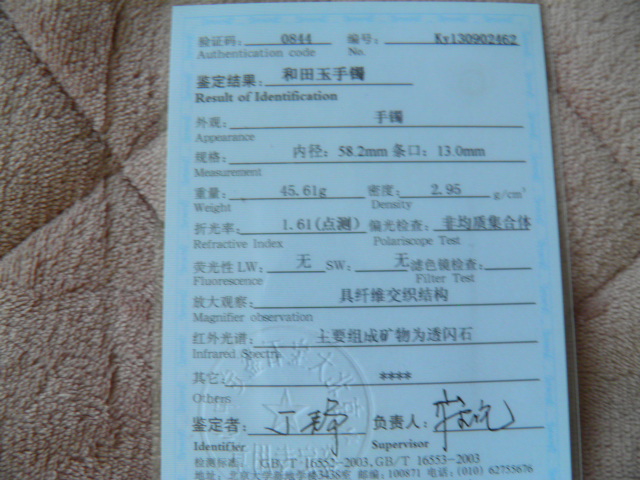 验证码： 0844 编号： Ky130902462
Authentication code No.
鉴定结果： 和田玉手镯
Result of Identification
外观： 手镯
Appearance
规格： 内径：58.2mm 条口：13.0mm
Measurement
重量： 45.61g 密度： 2.95 g/cm³
Weight Density
折光率： 1.61(点测) 偏光检查： 非均质集合体
Refractive Index Polariscope Test
荧光性 LW： 无 SW： 无 滤色镜检查：
Fluorescence Filter Test
放大观察： 具纤维交织结构
Magnifier observation
红外光谱： 主要组成矿物为透闪石
Infrared Spectra
其它： ****
Others
鉴定者： 负责人：
Identifier Supervisor
检测标准： GB/T 16552-2003,GB/T 16553-2003
地址：北京大学 邮编：100871 电话：(010) 62755676